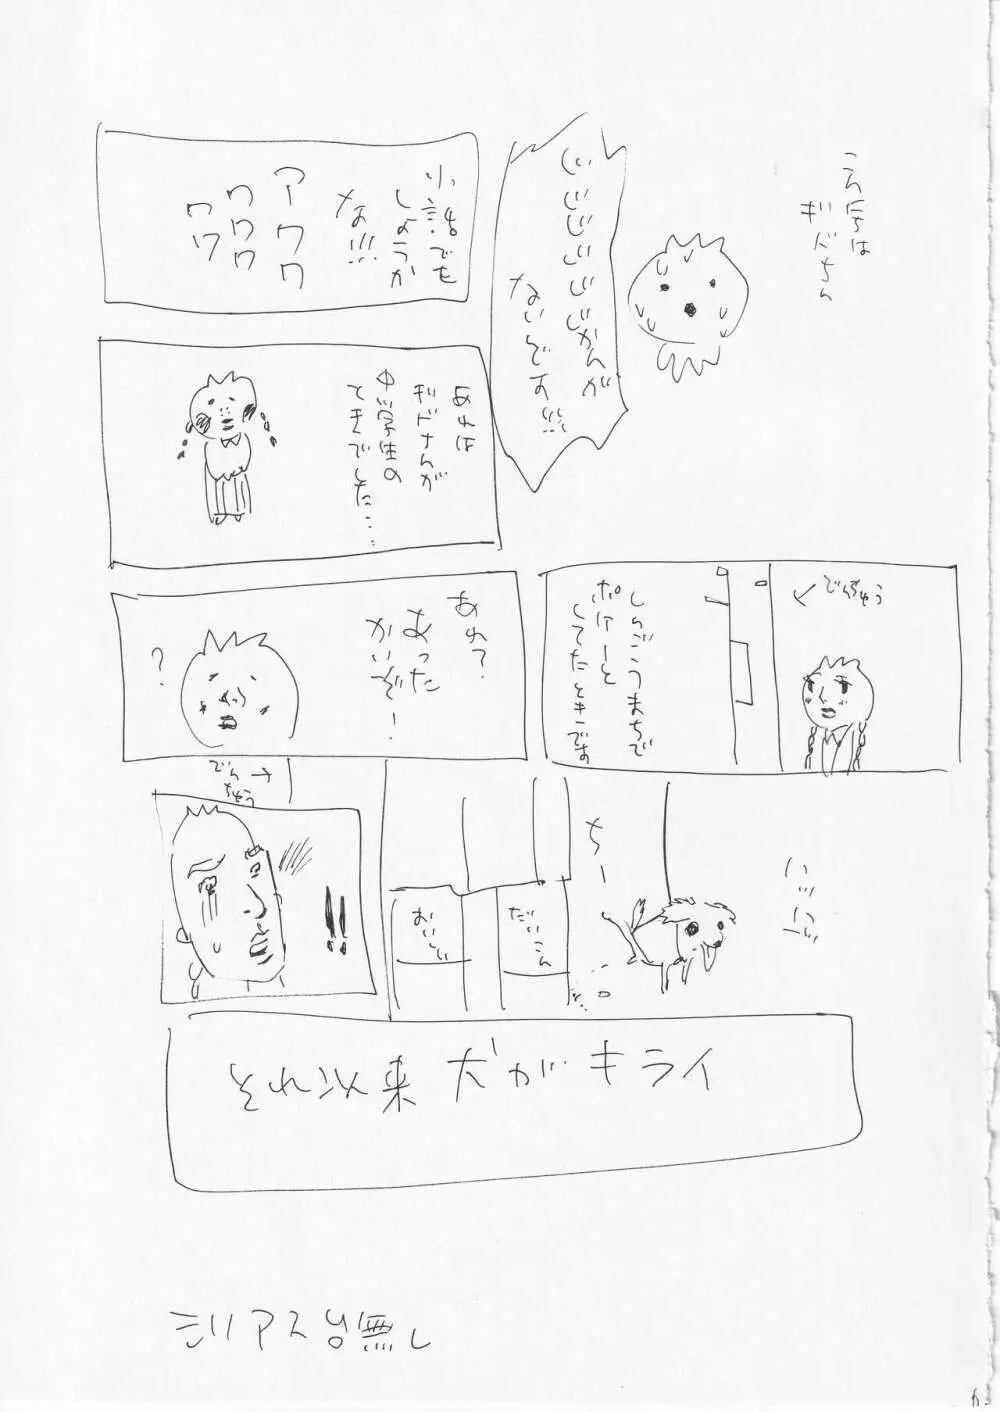 こんちは
ギドちん
じじじじじじかんが
ないんです!!!
小話でも
しようか
な!!!
アワワワ
ワワワ
ワワ
あれは
ギドちんが
中学生の
ときでした……
でんちゅう
しんごうまちで
ポけーと
してたときです
あれ?
あった
かいぞ!
?
ハッハッ
ちー
だいこん
おいしい
でん
ちゅう
!!
それ以来犬がキライ
シリアス台無し